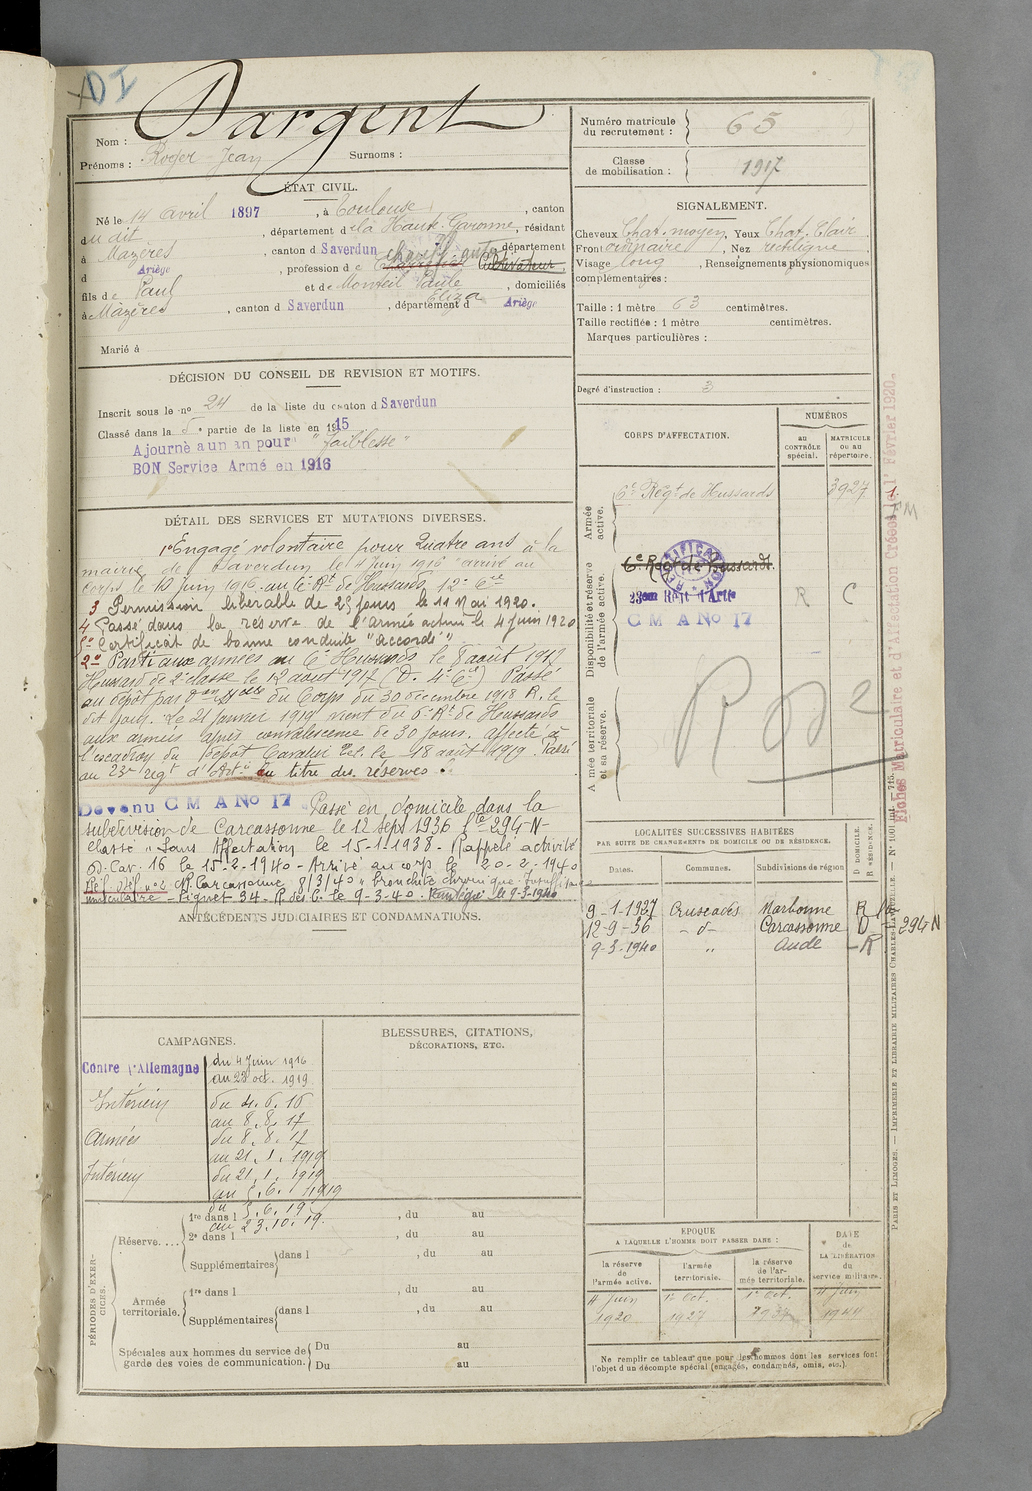 DI
Dargent
Nom :
Prénoms : Roger Jean Surnoms :
ÉTAT CIVIL.
Né le 14 avril 1897, à Toulouse, canton
du dit, département de la Haute Garonne, résidant
à Mazères, canton de Saverdun, département
d Ariège, profession de chauff. auto Cultivateur,
fils de Paul et de Monteil Paule Eliza, domiciliés
à Mazères, canton d Saverdun, département d Ariège
Marié à
DÉCISION DU CONSEIL DE REVISION ET MOTIFS.
Inscrit sous le no 24 de la liste du canton d Saverdun
Classé dans la 5e partie de la liste en 1915
Ajourné a un an pour "Faiblesse"
BON Service Armé en 1916
DÉTAIL DES SERVICES ET MUTATIONS DIVERSES.
1o Engagé volontaire pour Quatre ans à la
mairie de Saverdun le 4 Juin 1916 arrivé au
corps le 10 Juin 1916. au 6e Rt de Hussards, 12e Cie
3 Permission libérable de 25 jours le 11 Mai 1920.
4 Passé dans la réserve de l'armée active le 4 Juin 1920
5o Certificat de bonne conduite "accordé"
2o Parti aux armées au 6e Hussards le 8 août 1917
Hussard de 2e classe le 12 août 1917 (D. 4e Cie) Passé
au dépôt par don Melle du Corps du 30 décembre 1918 R. le
dit jour. Le 21 Janvier 1919 vient du 6e Rt de Hussards
aux armées après convalescence de 30 jours. affecté à
l'escadron du Dépôt Cavalier Tel. le 18 août 1919. Passé
au 23e regt d'Artie au titre des réserves.
Devenu C M A No 17 Passé en domicile dans la
subdivision de Carcassonne le 12 Sept 1936 Lte 294-N-
Classé "Sans Affectation le 15-1-1938 - Rappelé activité
D. Cav. 16 le 15-2-1940 - Arrivé au corps le 20-2-1940
Réf. Déf. no 2 CR Carcassonne 8/3/40 "bronchite chronique - Insuffisance
musculaire - Pignet 34. R. des C. le 9-3-40.
ANTÉCÉDENTS JUDICIAIRES ET CONDAMNATIONS.
CAMPAGNES.
Contre l'Allemagne du 4 Juin 1916
au 23 oct. 1919
Intérieur du 4. 6. 16
au 8. 8. 17
Armées du 8. 8. 17
au 21. 1. 1919
Intérieur du 21. 1. 1919
au 5. 6. 1919
du 5. 6. 19
au 23. 10. 19.
BLESSURES, CITATIONS,
DÉCORATIONS, ETC.
PÉRIODES D'EXERCICES.
Réserve.... 1re dans l , du au
2e dans l , du au
Supplémentaires dans l , du au
Armée territoriale. 1re dans l , du au
Supplémentaires dans l , du au
Spéciales aux hommes du service de Du au
garde des voies de communication. Du au
Numéro matricule
du recrutement : 65
Classe
de mobilisation : 1917
SIGNALEMENT.
Cheveux Chat. moyen, Yeux Chat. Clair,
Front ordinaire, Nez rectiligne
Visage long, Renseignements physionomiques
complémentaires :
Taille : 1 mètre 63 centimètres.
Taille rectifiée : 1 mètre centimètres.
Marques particulières :
Degré d'instruction : 3
CORPS D'AFFECTATION.
NUMÉROS
au CONTRÔLE spécial.
MATRICULE ou au répertoire.
Armée active.
6e Régt de Hussards 3927
Disponibilité et réserve de l'armée active.
6e Régt de Hussards.
23eme Régt d'Artie R C
C M A No 17
Armée territoriale et sa réserve.
R D2
LOCALITÉS SUCCESSIVES HABITÉES
PAR SUITE DE CHANGEMENTS DE DOMICILE OU DE RÉSIDENCE.
Dates. Communes. Subdivisions de région D. DOMICILE. R. RÉSIDENCE.
9-1-1927 Cruscades Narbonne R
12-9-36 - d - Carcassonne D - 294 N
9-3-1940 " Aude - R
EPOQUE
A LAQUELLE L'HOMME DOIT PASSER DANS :
la réserve de l'armée active.
l'armée territoriale.
la réserve de l'armée territoriale.
DATE de LA LIBÉRATION du service militaire.
4 Juin 1920
1er Oct. 1927
1er Oct. 1934
4 Juin 1944
Ne remplir ce tableau que pour les hommes dont les services font
l'objet d'un décompte spécial (engagés, condamnés, omis, etc.).
Fiches Matriculaire et d'Affectation Créées le 1er Février 1920
PARIS ET LIMOGES. — IMPRIMERIE ET LIBRAIRIE MILITAIRES CHARLES-LAVAUZELLE. —